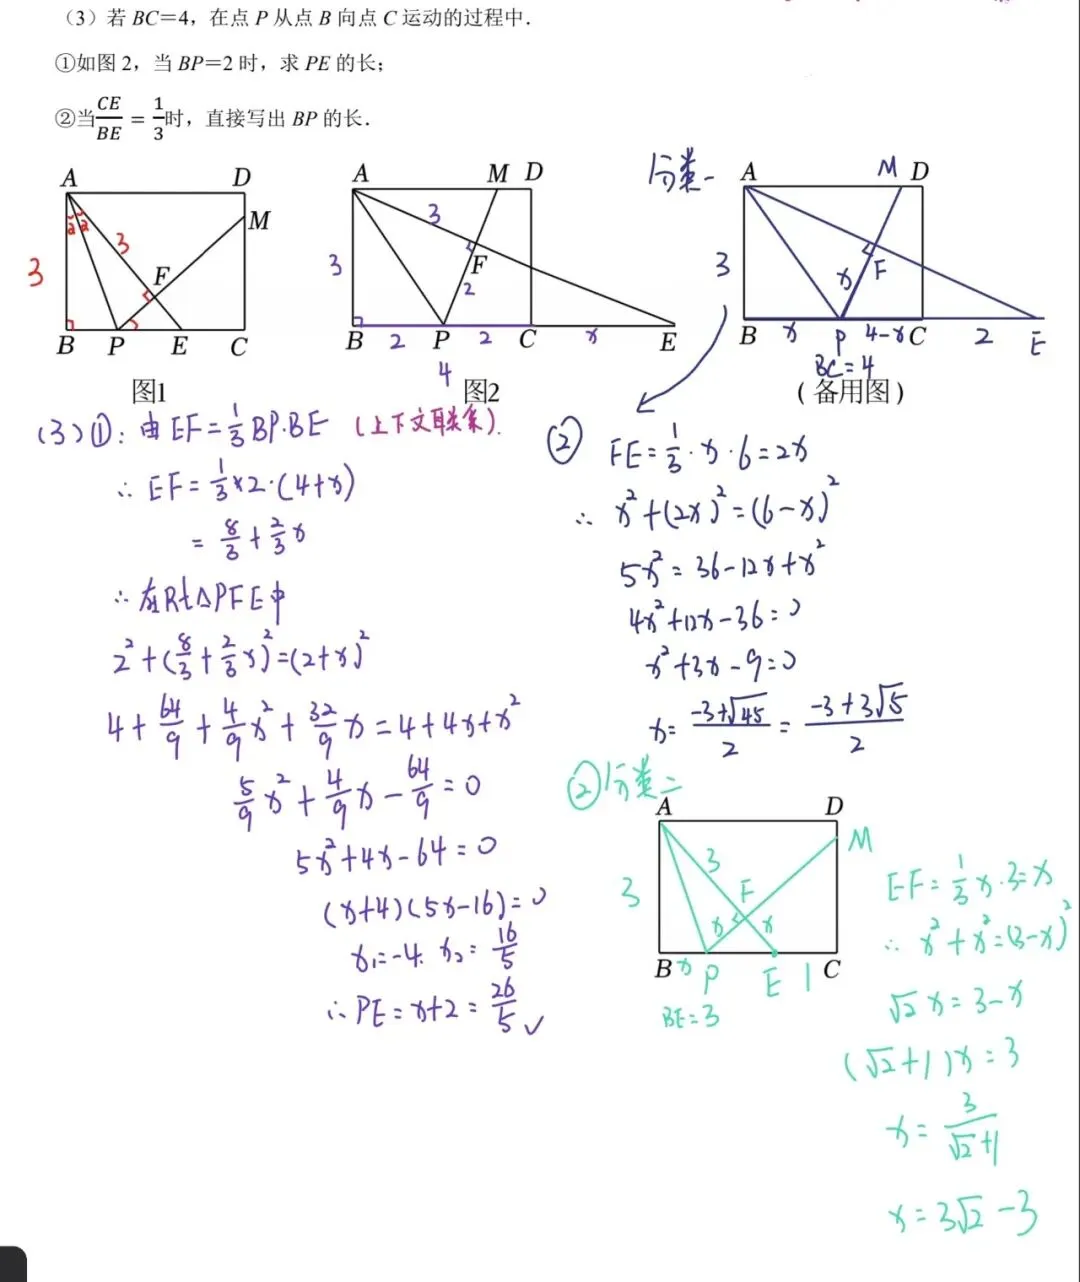 （3）若 BC＝4，在点 P 从点 B 向点 C 运动的过程中．
①如图 2，当 BP＝2 时，求 PE 的长；
②当CE/BE = 1/3时，直接写出 BP 的长．
A D M 3 2 2 3 F B P E C
图1
A M D 3 3 F 2 B 2 P 2 C x E
4
图2
分类一
A M D 3 x F B x P 4-x C 2 E
BC=4
（备用图）
(3)①: 由 EF=1/3 BP·BE (上下文联系).
∴ EF=1/3×2·(4+x)
= 8/3+2/3x
∴ 在Rt△PFE中
2²+(8/3+2/3x)²=(2+x)²
4+64/9+4/9x²+32/9x=4+4x+x²
5/9x²+4/9x-64/9=0
5x²+4x-64=0
(x+4)(5x-16)=0
x₁=-4. x₂=16/5
∴PE=x+2=26/5✓
② FE=1/3·x·6=2x
∴ x²+(2x)²=(6-x)²
5x²=36-12x+x²
4x²+12x-36=0
x²+3x-9=0
x=(-3+√45)/2=(-3+3√5)/2
②分类二
A D M 3 3 F x x B x P E 1 C
BE=3
EF=1/3x·3=x
∴ x²+x²=(3-x)²
√2x=3-x
(√2+1)x=3
x=3/(√2+1)
x=3√2-3